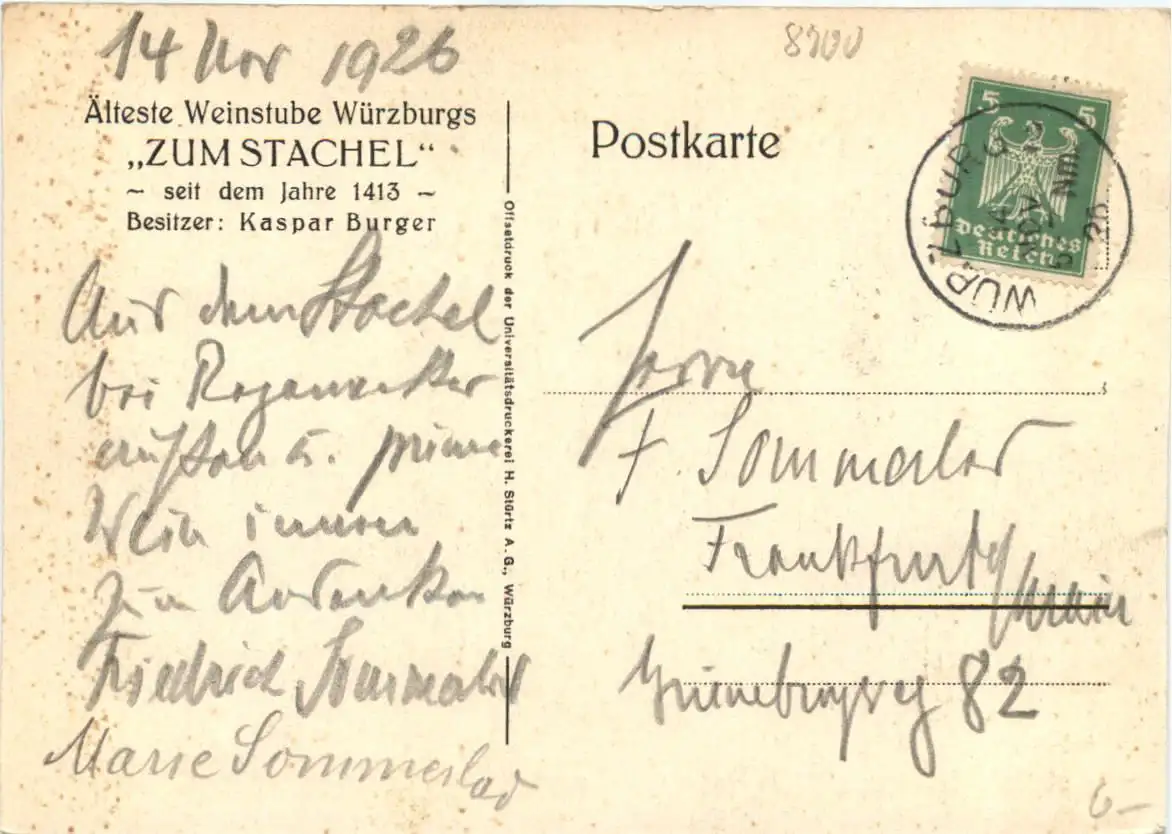 14 Nov 1926
Älteste Weinstube Würzburgs
„ZUM STACHEL“
~ seit dem Jahre 1413 ~
Besitzer: Kaspar Burger
Aus dem Stachel
bei Regenwetter
u. prima
Wein
zum Andenken
Friedrich Sommerlad
Marie Sommerlad
Offsetdruck der Universitätsdruckerei H. Stürtz A.G., Würzburg
8700
Postkarte
5 5
Deutsches
Reich
WÜRZBURG 2
14 NOV 26
5 Nm
Herrn
F. Sommerlad
Frankfurt/Main
Grüneburgweg 82
6-